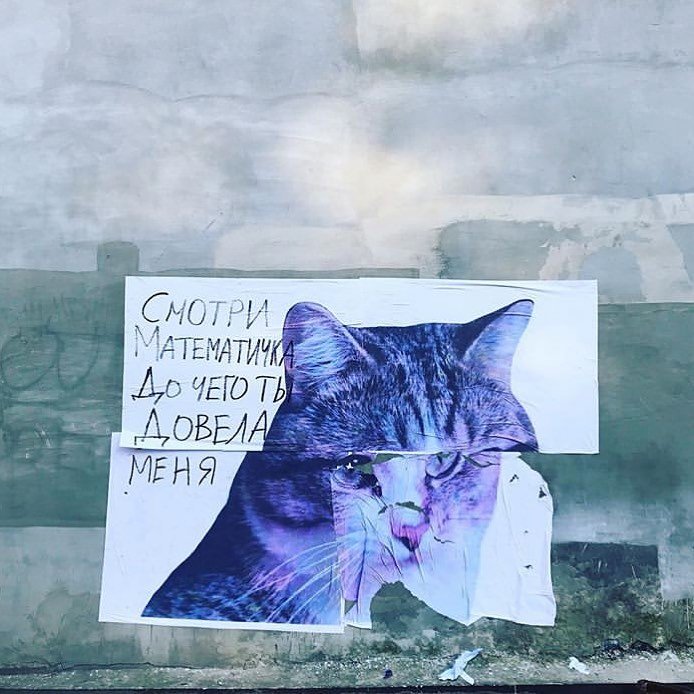 СМОТРИ
МАТЕМАТИЧКА
ДО ЧЕГО ТЫ
ДОВЕЛА
МЕНЯ